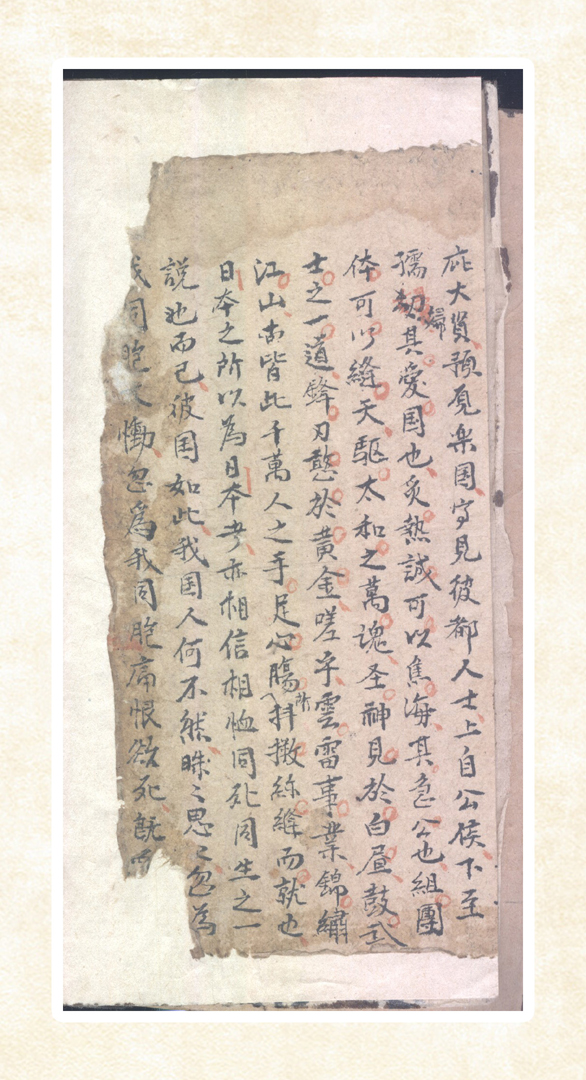 庇大賀預覓楽国实見彼都人士上自公侯下至
孺婦刧其愛国也炙熱誠可以焦海其急公也組團
体可以縫天駆太和之萬魂圣神見於白昼鼓武
士之一道鋒刃憨於黄金嗟乎雲雷事業錦繡
江山啇皆此千萬人之手足心膓所抖擻絲縫而就也
日本之所以為日本者亦相信相恤同死同生之一
説也而已彼国如此我国人何不然昧之思之忽為
我同胞之慟忽為我同胞痛恨欲死既而